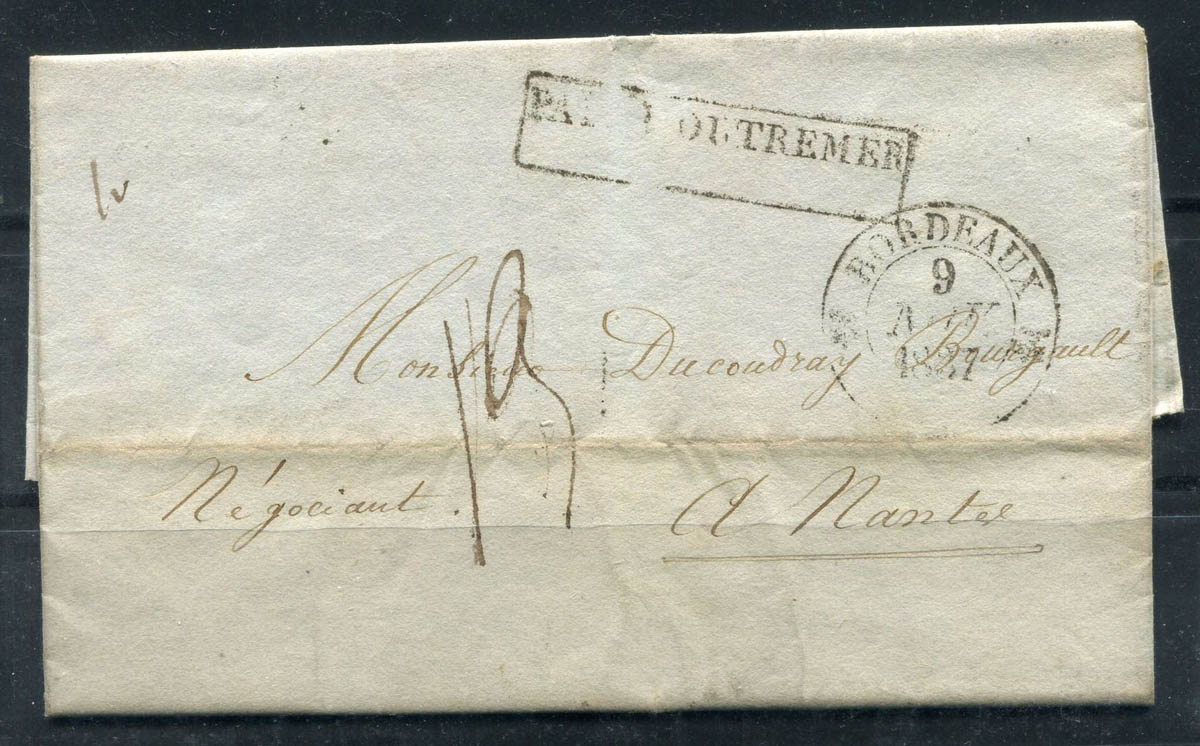 PAY OUTREMER
BORDEAUX
9
Monsieur Ducoudray Bourgault
Négociant.
A Nantes